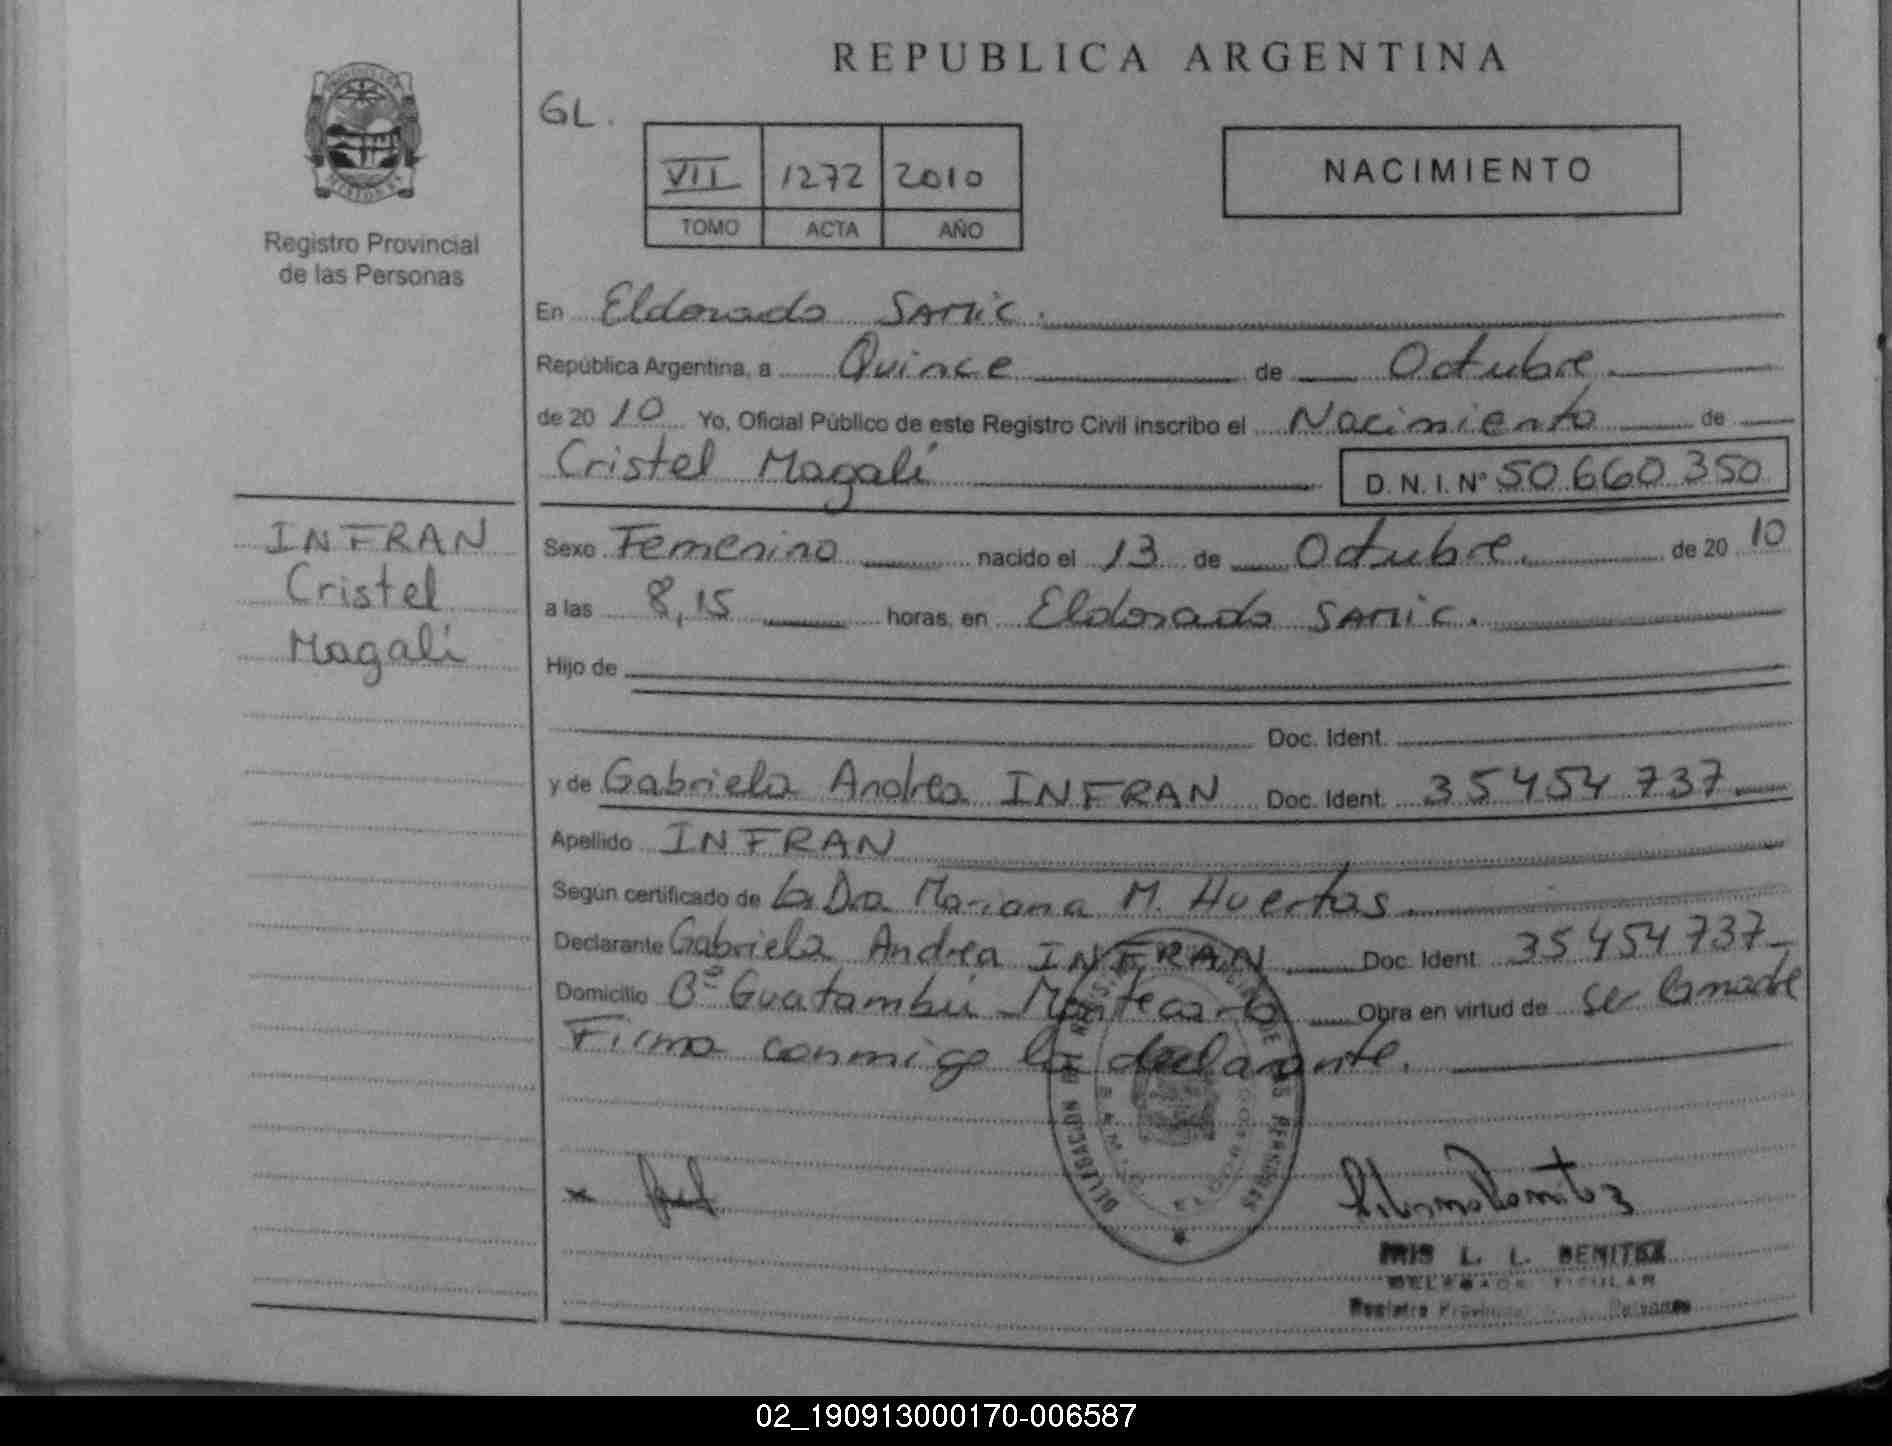 REPUBLICA ARGENTINA
GL.
VII 1272 2010
TOMO ACTA AÑO
NACIMIENTO
MISIONES
Registro Provincial
de las Personas
En Eldorado SAMIC.
República Argentina, a Quince de Octubre.
de 20 10 Yo, Oficial Público de este Registro Civil inscribo el Nacimiento de
Cristel Magalí D. N. I. N° 50 660 350
INFRAN
Cristel
Magalí
Sexo Femenino nacido el 13 de Octubre. de 20 10
a las 8,15 horas, en Eldorado SAMIC.
Hijo de
Doc. Ident.
y de Gabriela Andrea INFRAN Doc. Ident. 35 454 737
Apellido INFRAN
Según certificado de la Dra Mariana M. Huertas.
Declarante Gabriela Andrea INFRAN Doc. Ident 35 454 737
Domicilio Bº Guatambú Montecarlo Obra en virtud de ser la madre
Firma conmigo la declarante.
DELEGACION DE LAS PERSONAS
IRIS L. L. BENITEZ
DELEGADA TITULAR
Registro Provincial Personas
02_190913000170-006587